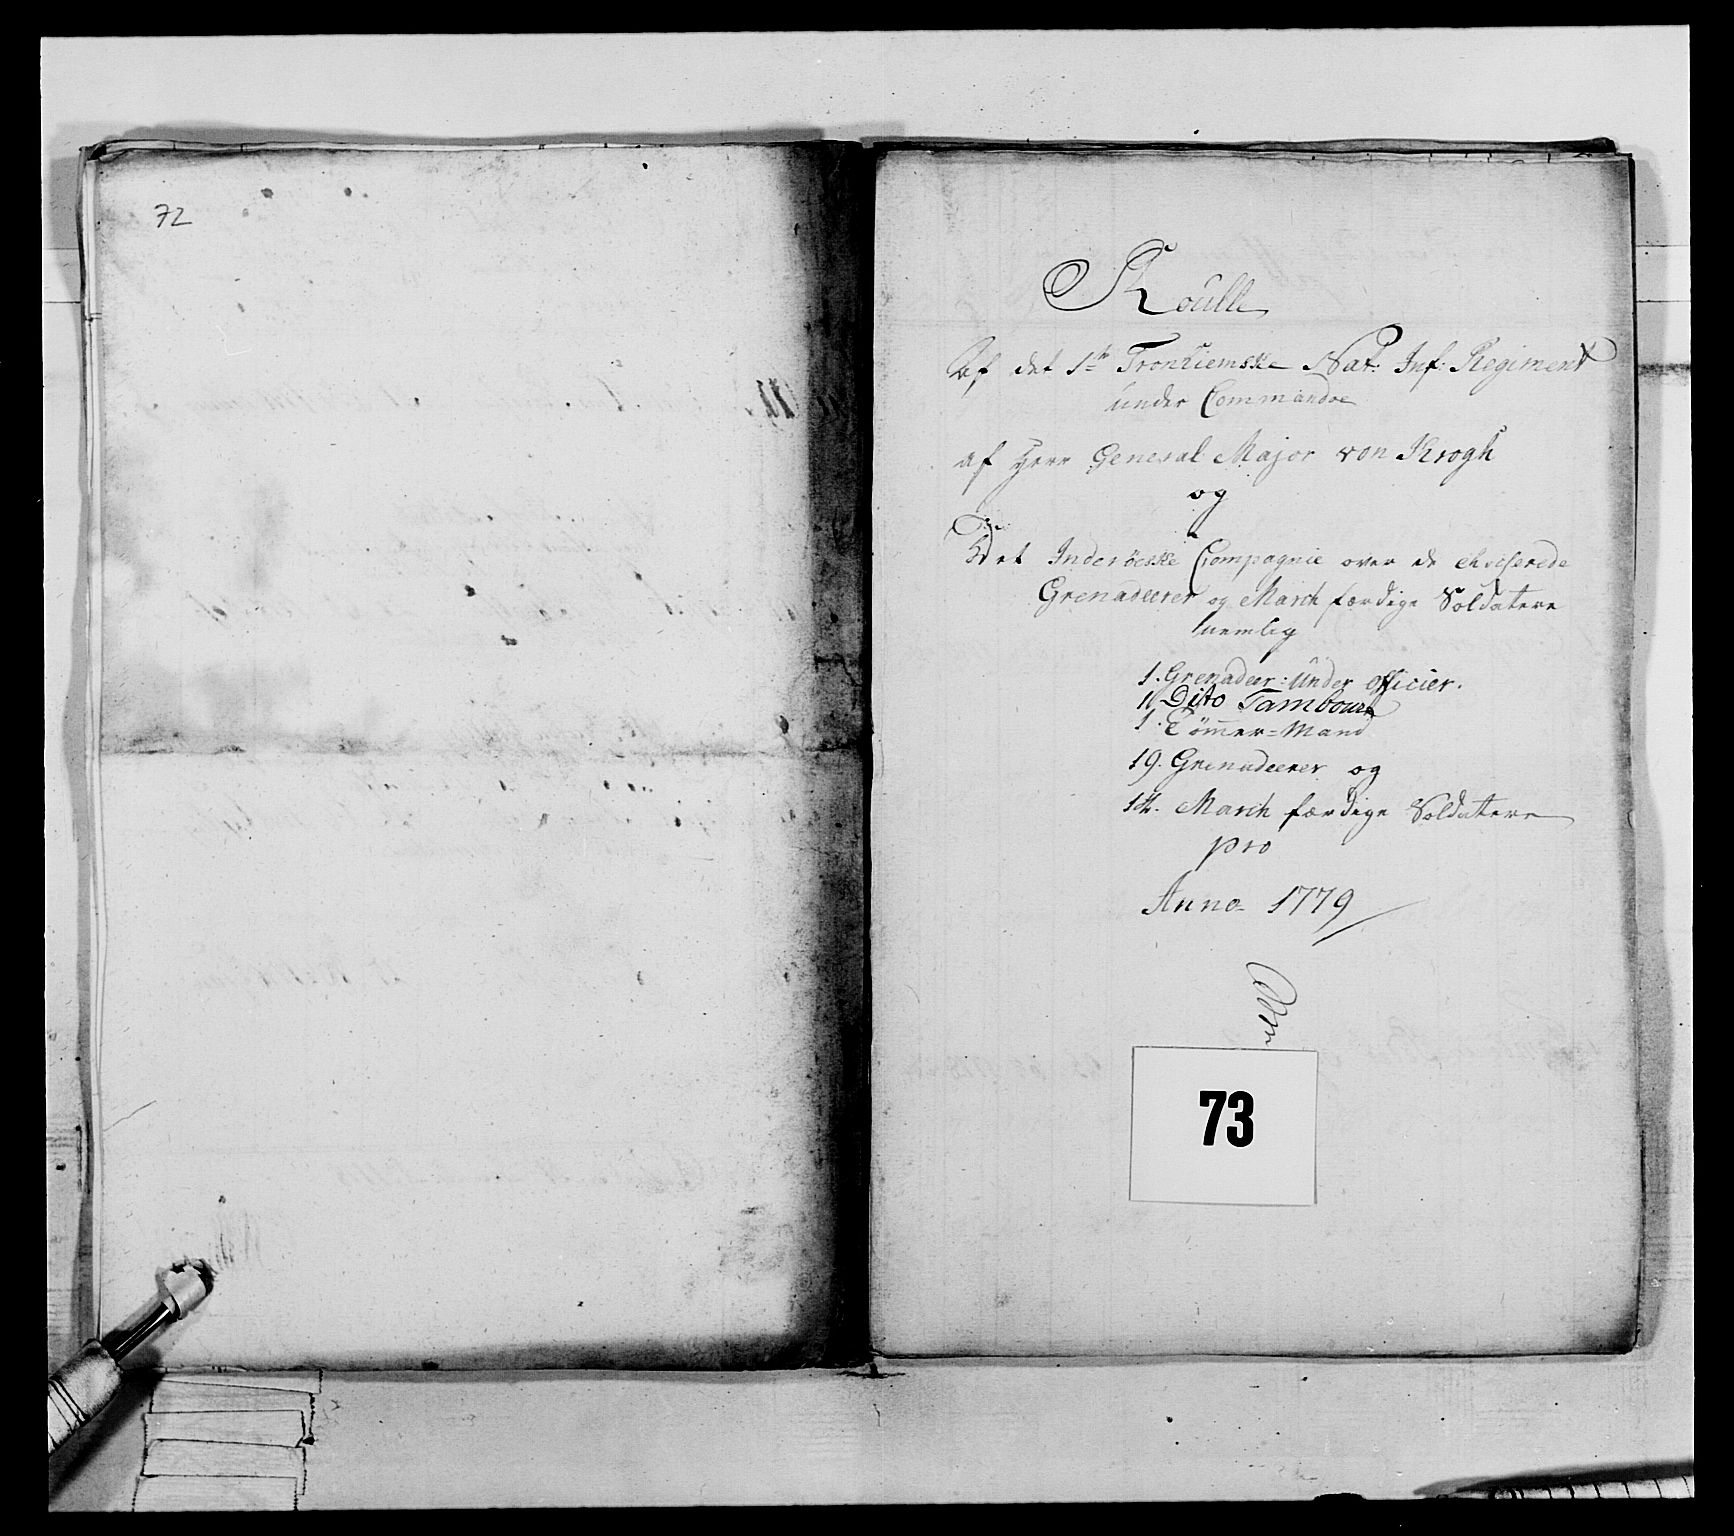 72
Roulle
Af det 1te Tronhiemske Nat: Inf: Regiment
under Commandoe
af Herr General Major von Krogh
og
Det Inderöeske Compagnie over de
Grenadeerer og March færdige Soldatere
nemlig
1. Grenadeer: Under Officier.
1 Dito Tambour
1. Tömer=Mand
19. Grenadeerer og
14. March færdige Soldatere
pro
Anno 1779
73